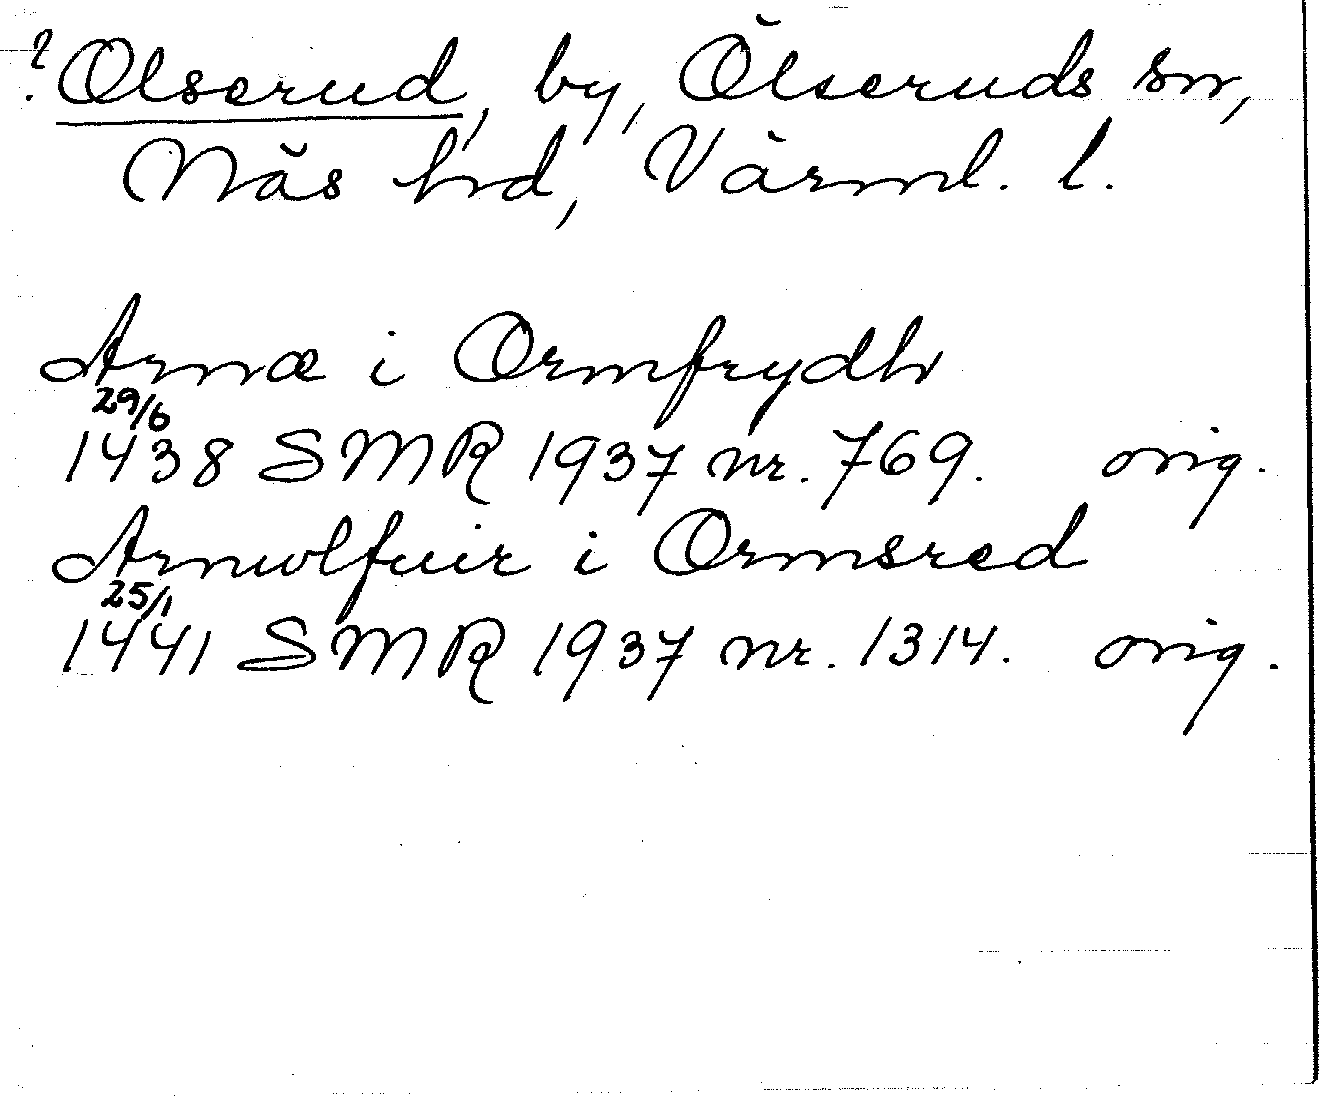 ? Olserud, by, Ölseruds sn,
Näs hd, Värml. l.
Arnæ i Ormfrydh
29/6
1438 SMR 1937 nr. 769. orig.
Arnwlfuir i Ormsred
25/1
1441 SMR 1937 nr. 1314. orig.